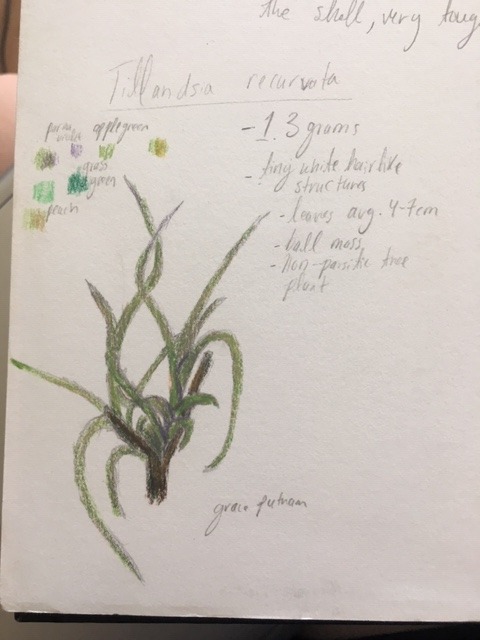 the shell, very tough
Tillandsia recurvata
parma violet apple green
grass green
peach
- 1.3 grams
- tiny white hairlike
structures
- leaves avg. 4-7cm
- ball moss
- non-parsitic tree
plant
grace putnam